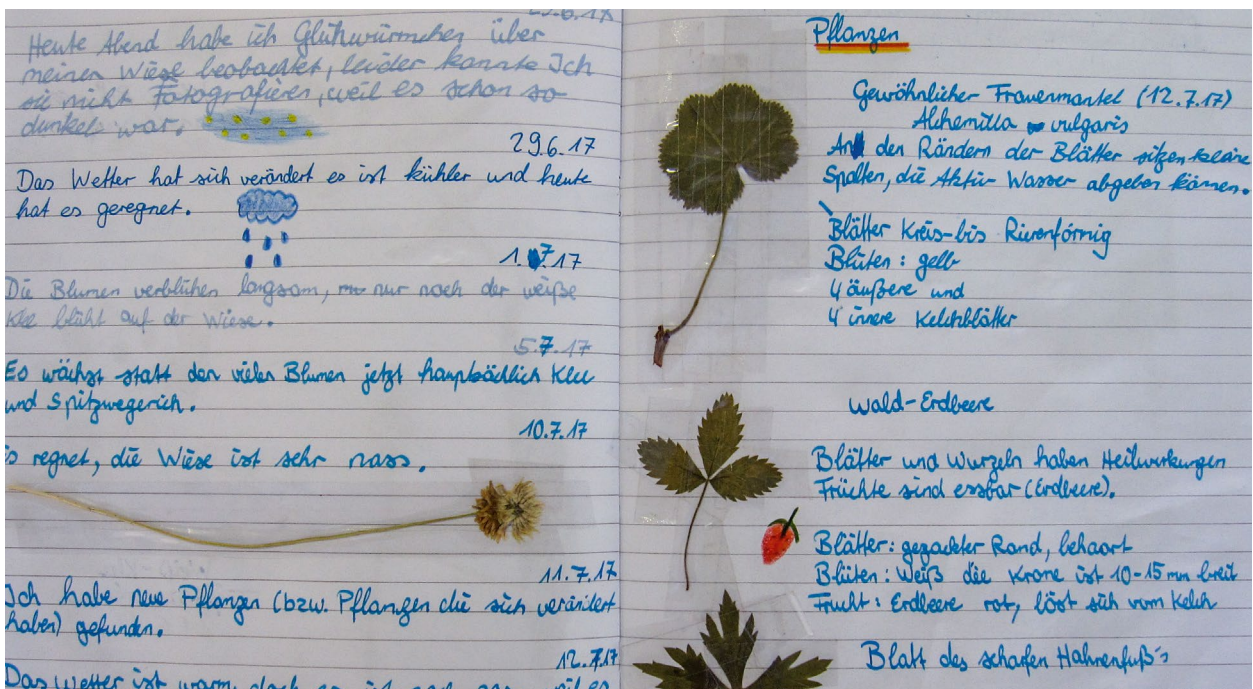 Heute Abend habe ich Glühwürmchen über
meiner Wiese beobachtet, leider konnte Ich
sie nicht Fotografieren, weil es schon so
dunkel war.
29.6.17
Das Wetter hat sich verändert es ist kühler und heute
hat es geregnet.
1.7.17
Die Blumen verblühen langsam, nur noch der weiße
Klee blüht auf der Wiese.
5.7.17
Es wächst statt den vielen Blumen jetzt hauptsächlich Klee
und Spitzwegerich.
10.7.17
s regnet, die Wiese ist sehr nass.
11.7.17
Ich habe neue Pflanzen (bzw. Pflanzen die sich verändert
haben) gefunden.
12.7.17
Das Wetter ist warm, doch es ist
Pflanzen
Gewöhnlicher Frauenmantel (12.7.17)
Alchemilla vulgaris
An den Rändern der Blätter sitzen kleine
Spalten, die Aktiv Wasser abgeben können.
Blätter Kreis-bis Nierenförmig
Blüten: gelb
4 äußere und
4 innere Kelchblätter
Wald-Erdbeere
Blätter und Wurzeln haben Heilwirkungen
Früchte sind essbar (Erdbeere).
Blätter: gezackter Rand, behaart
Blüten: Weiß die Krone ist 10-15mm breit
Frucht: Erdbeere rot, löst sich vom Kelch
Blatt des scharfen Hahnenfuß's